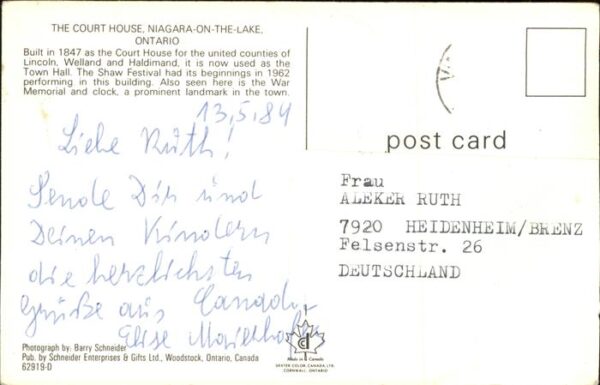 THE COURT HOUSE, NIAGARA-ON-THE-LAKE,
ONTARIO
Built in 1847 as the Court House for the united counties of
Lincoln, Welland and Haldimand, it is now used as the
Town Hall. The Shaw Festival had its beginnings in 1962
performing in this building. Also seen here is the War
Memorial and clock, a prominent landmark in the town.
13,5,84
Liebe Ruth!
Sende Dir und
Deinen Kindern
die herzlichsten
Grüße aus Canada,
Elise
Photograph by: Barry Schneider
Pub. by Schneider Enterprises & Gifts Ltd., Woodstock, Ontario, Canada
62919-D
post card
Frau
ALEKER RUTH
7920 HEIDENHEIM/BRENZ
Felsenstr. 26
DEUTSCHLAND
Made in Canada
DEXTER COLOR CANADA LTD.
CORNWALL, ONTARIO